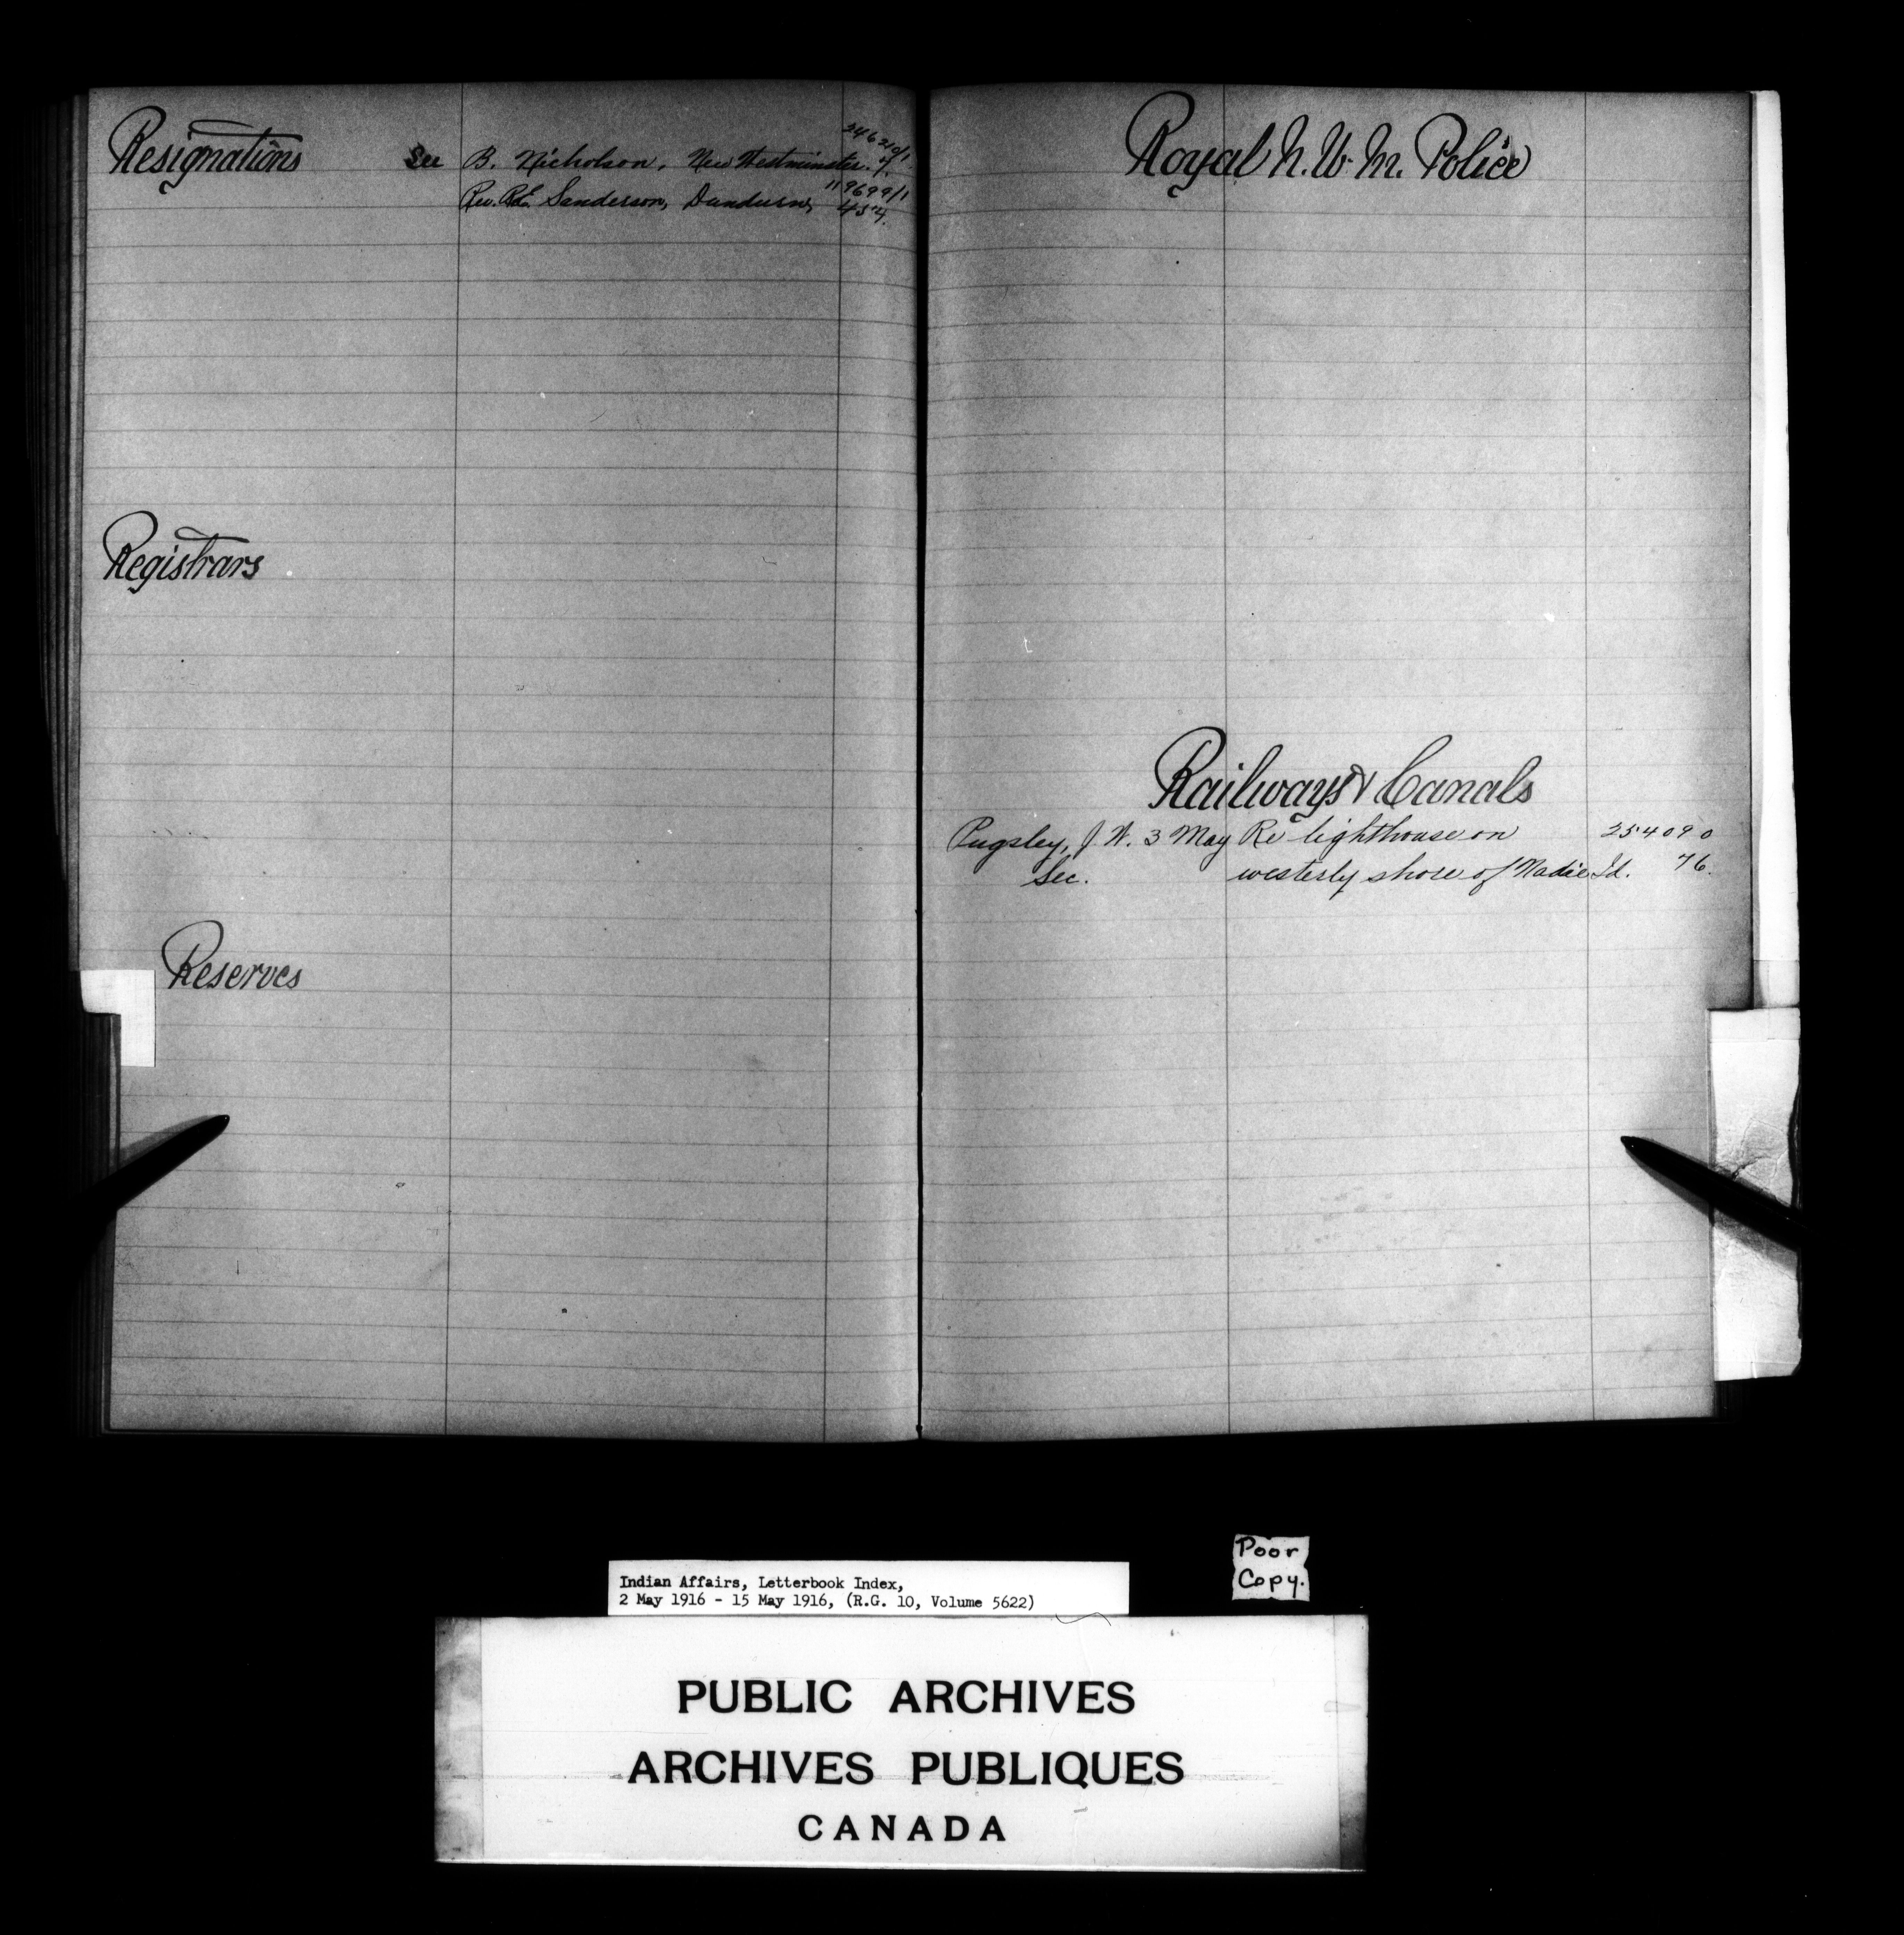 Resignations See B. Nicholson, New Westminster. 246210/1
7.
Rev. R.E. Sanderson, Dundurn, 119699/1
454.
Registrars
Reserves
Royal N.W.M. Police
Railways & Canals
Pugsley, J. W. 3 May Re lighthouse on 254090
Sec. westerly shore of Nadie Id. 76.
Poor
Copy.
Indian Affairs, Letterbook Index,
2 May 1916 - 15 May 1916, (R.G. 10, Volume 5622)
PUBLIC ARCHIVES
ARCHIVES PUBLIQUES
CANADA